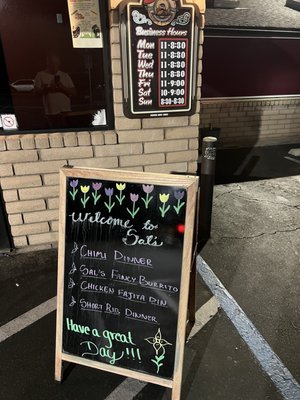 Business Hours
Mon 11-8:30
Tue 11-8:30
Wed 11-8:30
Thu 11-8:30
Fri 9-9:00
Sat 9-9:00
Sun 8-8:30
Welcome to
Sal's
Chimi Dinner
Sal's Fancy Burrito
Chicken Fajita Din
Short Rib Dinner
Have a great
Day!!!